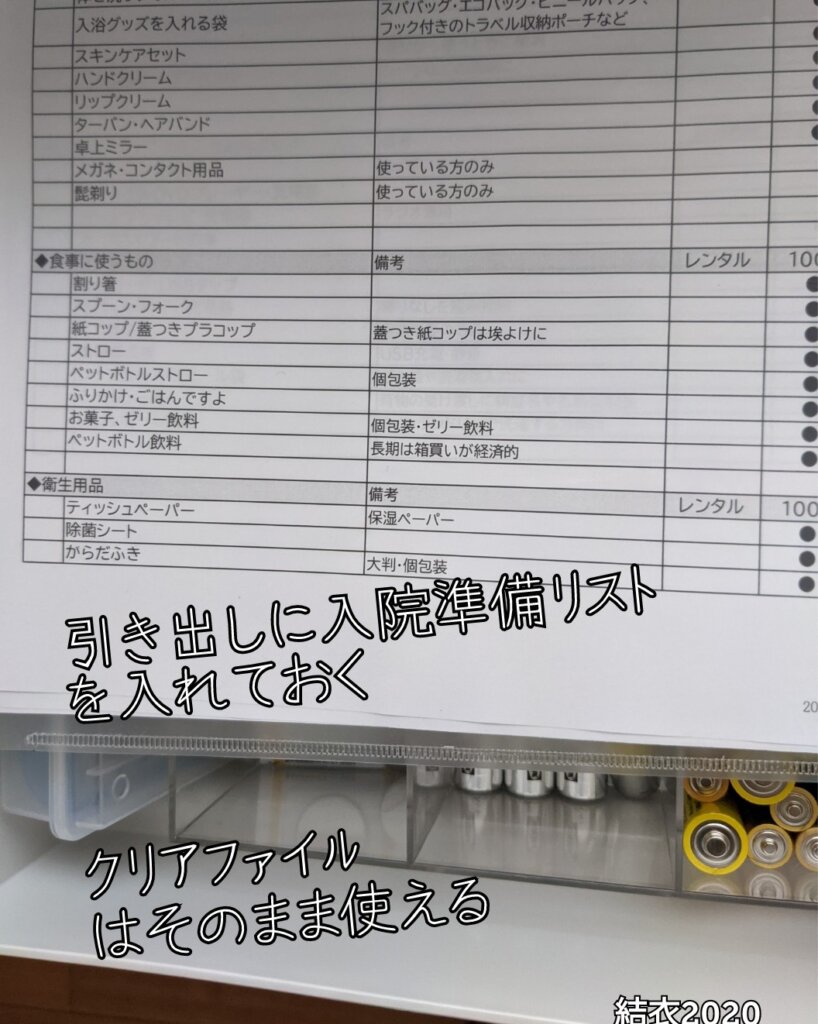 スパバッグ・エコバッグ・ビニールバッグ、
入浴グッズを入れる袋 フック付きのトラベル収納ポーチなど
スキンケアセット
ハンドクリーム
リップクリーム
ターバン・ヘアバンド
卓上ミラー
メガネ・コンタクト用品 使っている方のみ
髭剃り 使っている方のみ
◆食事に使うもの 備考 レンタル 100
割り箸
スプーン・フォーク
紙コップ/蓋つきプラコップ 蓋つき紙コップは埃よけに
ストロー
ペットボトルストロー 個包装
ふりかけ・ごはんですよ
お菓子、ゼリー飲料 個包装・ゼリー飲料
ペットボトル飲料 長期は箱買いが経済的
◆衛生用品 備考 レンタル 100
ティッシュペーパー 保湿ペーパー
除菌シート
からだふき 大判・個包装
引き出しに入院準備リスト
を入れておく
20
クリアファイル
はそのまま使える
結衣2020